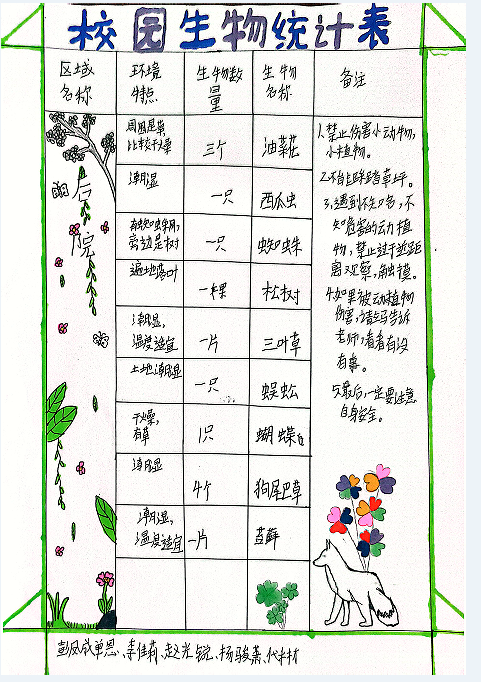 校园生物统计表
区域名称 环境特点 生物数量 生物名称 备注
后院
周围是草比较干燥 三个 油菜花
潮湿 一只 西瓜虫
有蜘蛛网,旁边是树 一只 蜘蛛
遍地落叶 一棵 松树
潮湿,温度适宜 一片 三叶草
土地潮湿 一只 蜈蚣
干燥,有草 1只 蝴蝶
潮湿 4个 狗尾巴草
潮湿,温度适宜 一片 苔藓
1.禁止伤害小动物,
小植物。
2.不能踩踏草坪。
3.遇到不知名,不
知危害的动植
物,禁止过于近距
离观察,触摸。
4.如果被动植物
伤害,请立马告诉
老师,看看有没
有毒。
5.最后,一定要注意
自身安全。
李佳莉、赵光锐、杨骏燕、代梓林